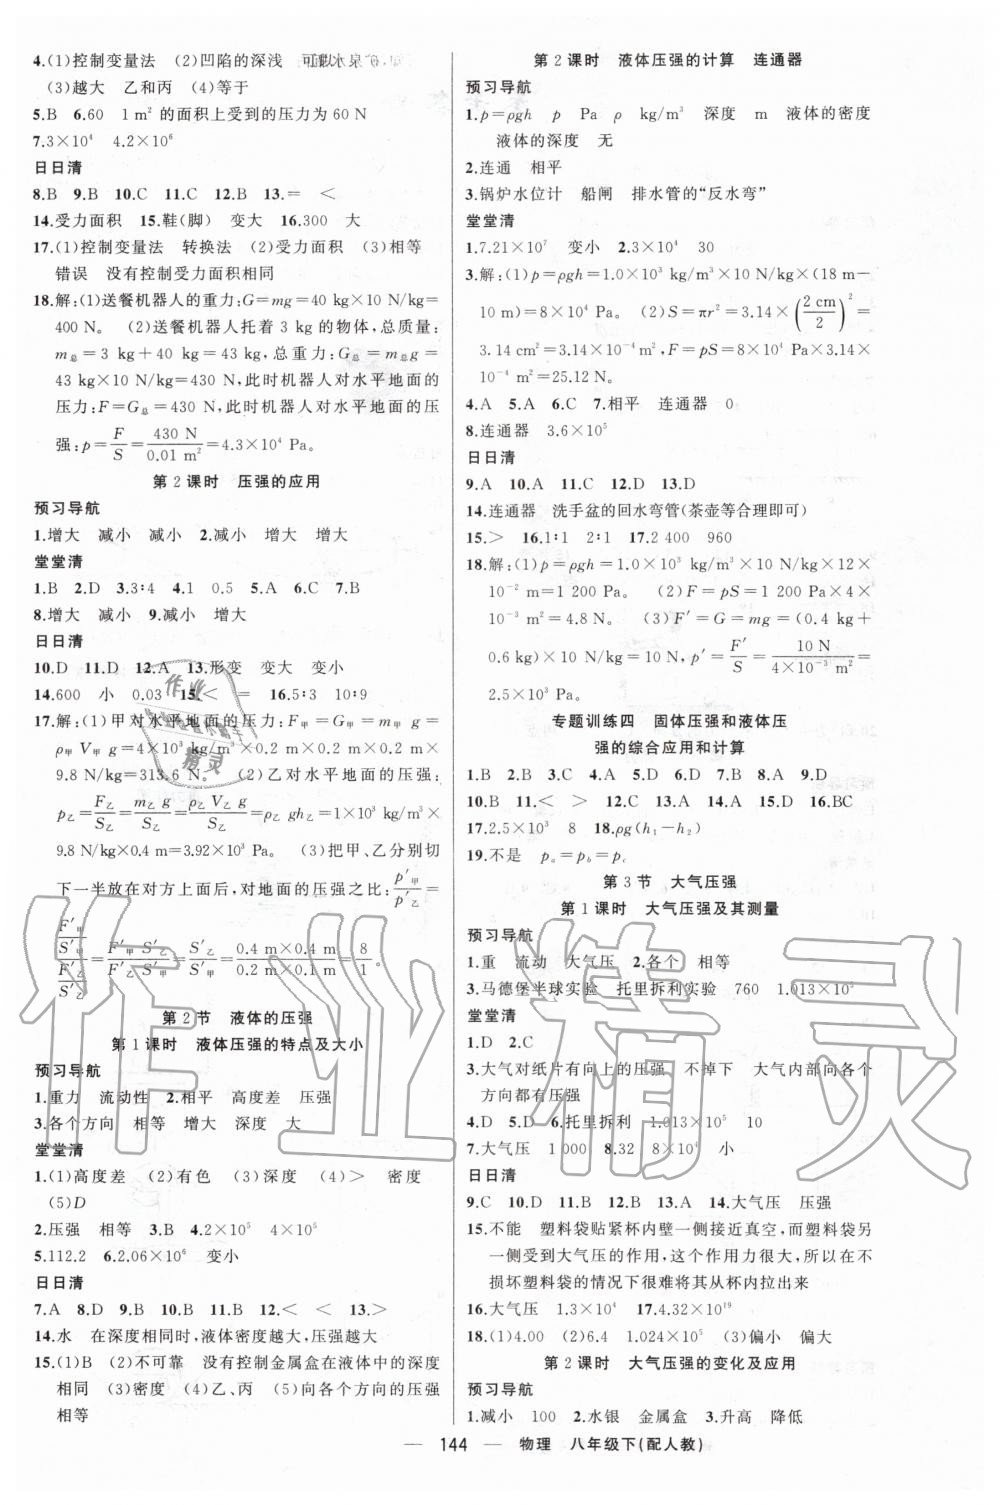 4.(1)控制变量法 (2)凹陷的深浅 可
(3)越大 乙和丙 (4)等于
5.B 6.60 1 m²的面积上受到的压力为 60 N
7.3×10⁴ 4.2×10⁶
日日清
8.B 9.B 10.C 11.C 12.B 13.= <
14.受力面积 15.鞋(脚) 变大 16.300 大
17.(1)控制变量法 转换法 (2)受力面积 (3)相等
错误 没有控制受力面积相同
18.解:(1)送餐机器人的重力:G=mg=40 kg×10 N/kg=
400 N。 (2)送餐机器人托着 3 kg 的物体,总质量:
m总=3 kg+40 kg=43 kg,总重力:G总=m总g=
43 kg×10 N/kg=430 N,此时机器人对水平地面的
压力:F=G总=430 N,此时机器人对水平地面的压
强:p=F/S=430 N/0.01 m²=4.3×10⁴ Pa。
第 2 课时 压强的应用
预习导航
1.增大 减小 减小 2.减小 增大 增大
堂堂清
1.B 2.D 3.3∶4 4.1 0.5 5.A 6.C 7.B
8.增大 减小 9.减小 增大
日日清
10.D 11.D 12.A 13.形变 变大 变小
14.600 小 0.03 15.< = 16.5∶3 10∶9
17.解:(1)甲对水平地面的压力:F甲=G甲=m甲 g=
ρ甲 V甲 g=4×10³ kg/m³×0.2 m×0.2 m×0.2 m×
9.8 N/kg=313.6 N。 (2)乙对水平地面的压强:
p乙=F乙/S乙=m乙 g/S乙=ρ乙 V乙 g/S乙=ρ乙 gh乙=1×10³ kg/m³×
9.8 N/kg×0.4 m=3.92×10³ Pa。 (3)把甲、乙分别切
下一半放在对方上面后,对地面的压强之比:p′甲/p′乙=
(F′甲/S′甲)/(F′乙/S′乙)=F′甲/F′乙 S′乙/S′甲=S′乙/S′甲=0.4 m×0.4 m/0.2 m×0.1 m=8/1。
第 2 节 液体的压强
第 1 课时 液体压强的特点及大小
预习导航
1.重力 流动性 2.相平 高度差 压强
3.各个方向 相等 增大 深度 大
堂堂清
1.(1)高度差 (2)有色 (3)深度 (4)> 密度
(5)D
2.压强 相等 3.B 4.2×10⁵ 4×10⁵
5.112.2 6.2.06×10⁶ 变小
日日清
7.A 8.D 9.B 10.B 11.B 12.< < 13.>
14.水 在深度相同时,液体密度越大,压强越大
15.(1)B (2)不可靠 没有控制金属盒在液体中的深度
相同 (3)密度 (4)乙、丙 (5)向各个方向的压强
相等
第 2 课时 液体压强的计算 连通器
预习导航
1.p=ρgh p Pa ρ kg/m³ 深度 m 液体的密度
液体的深度 无
2.连通 相平
3.锅炉水位计 船闸 排水管的“反水弯”
堂堂清
1.7.21×10⁷ 变小 2.3×10⁴ 30
3.解:(1)p=ρgh=1.0×10³ kg/m³×10 N/kg×(18 m-
10 m)=8×10⁴ Pa。 (2)S=πr²=3.14×(2 cm/2)²=
3.14 cm²=3.14×10⁻⁴ m²,F=pS=8×10⁴ Pa×3.14×
10⁻⁴ m²=25.12 N。
4.A 5.A 6.C 7.相平 连通器 0
8.连通器 3.6×10⁵
日日清
9.A 10.A 11.C 12.D 13.D
14.连通器 洗手盆的回水弯管(茶壶等合理即可)
15.> 16.1∶1 2∶1 17.2 400 960
18.解:(1)p=ρgh=1.0×10³ kg/m³×10 N/kg×12×
10⁻² m=1 200 Pa。 (2)F=pS=1 200 Pa×4×
10⁻³ m²=4.8 N。 (3)F′=G=mg=(0.4 kg+
0.6 kg)×10 N/kg=10 N,p′=F′/S=10 N/4×10⁻³ m²=
2.5×10³ Pa。
专题训练四 固体压强和液体压
强的综合应用和计算
1.B 2.B 3.C 4.A 5.D 6.D 7.B 8.A 9.D
10.B 11.< > 12.C 13.A 14.A 15.D 16.BC
17.2.5×10³ 8 18.ρg(h₁-h₂)
19.不是 pₐ=p_b=p_c
第 3 节 大气压强
第 1 课时 大气压强及其测量
预习导航
1.重 流动 大气压 2.各个 相等
3.马德堡半球实验 托里拆利实验 760 1.013×10⁵
堂堂清
1.D 2.C
3.大气对纸片有向上的压强 不掉下 大气内部向各个
方向都有压强
4.D 5.D 6.托里拆利 1.013×10⁵ 10
7.大气压 1 000 8.32 8×10⁴ 小
日日清
9.C 10.D 11.B 12.B 13.A 14.大气压 压强
15.不能 塑料袋贴紧杯内壁一侧接近真空,而塑料袋另
一侧受到大气压的作用,这个作用力很大,所以在不
损坏塑料袋的情况下很难将其从杯内拉出来
16.大气压 1.3×10⁴ 17.4.32×10¹⁹
18.(1)4.00 (2)6.4 1.024×10⁵ (3)偏小 偏大
第 2 课时 大气压强的变化及应用
预习导航
1.减小 100 2.水银 金属盒 3.升高 降低
— 144 — 物理 八年级下(配人教)
作业精灵